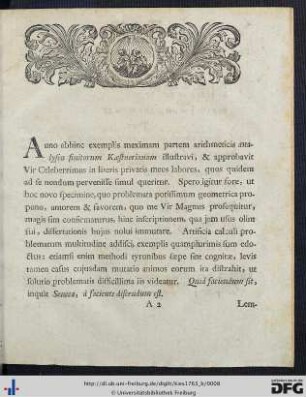 Anno abhinc exemplis maximam partem arithmeticis ana-
lysin finitorum Kæstnerianam illustravi, & approbavit
Vir Celeberrimus in literis privatis meos labores, quos quidem
ad se nondum pervenisse simul queritur. Spero igitur fore, ut
hoc novo specimine, quo problemata potissimum geometrica pro-
pono, amorem & favorem, quo me Vir Magnus prosequitur,
magis sim consecuturus, hinc inscriptionem, qua jam usus olim
fui, dissertationis hujus nolui immutare. Artificia calculi pro-
blematum multitudine addisci, exemplis quamplurimis sum edo-
ctus: etiamsi enim methodi tyronibus sæpe sint cognitæ, levis
tamen casus cujusdam mutatio animos eorum ita distrahit, ut
solutio problematis difficillima iis videatur. Quid faciendum sit,
inquit Seneca, a faciente discendum est.
A 2 Lem-
http://dl.ub.uni-freiburg.de/diglit/kies1763_b/0008
© Universitätsbibliothek Freiburg
DFG